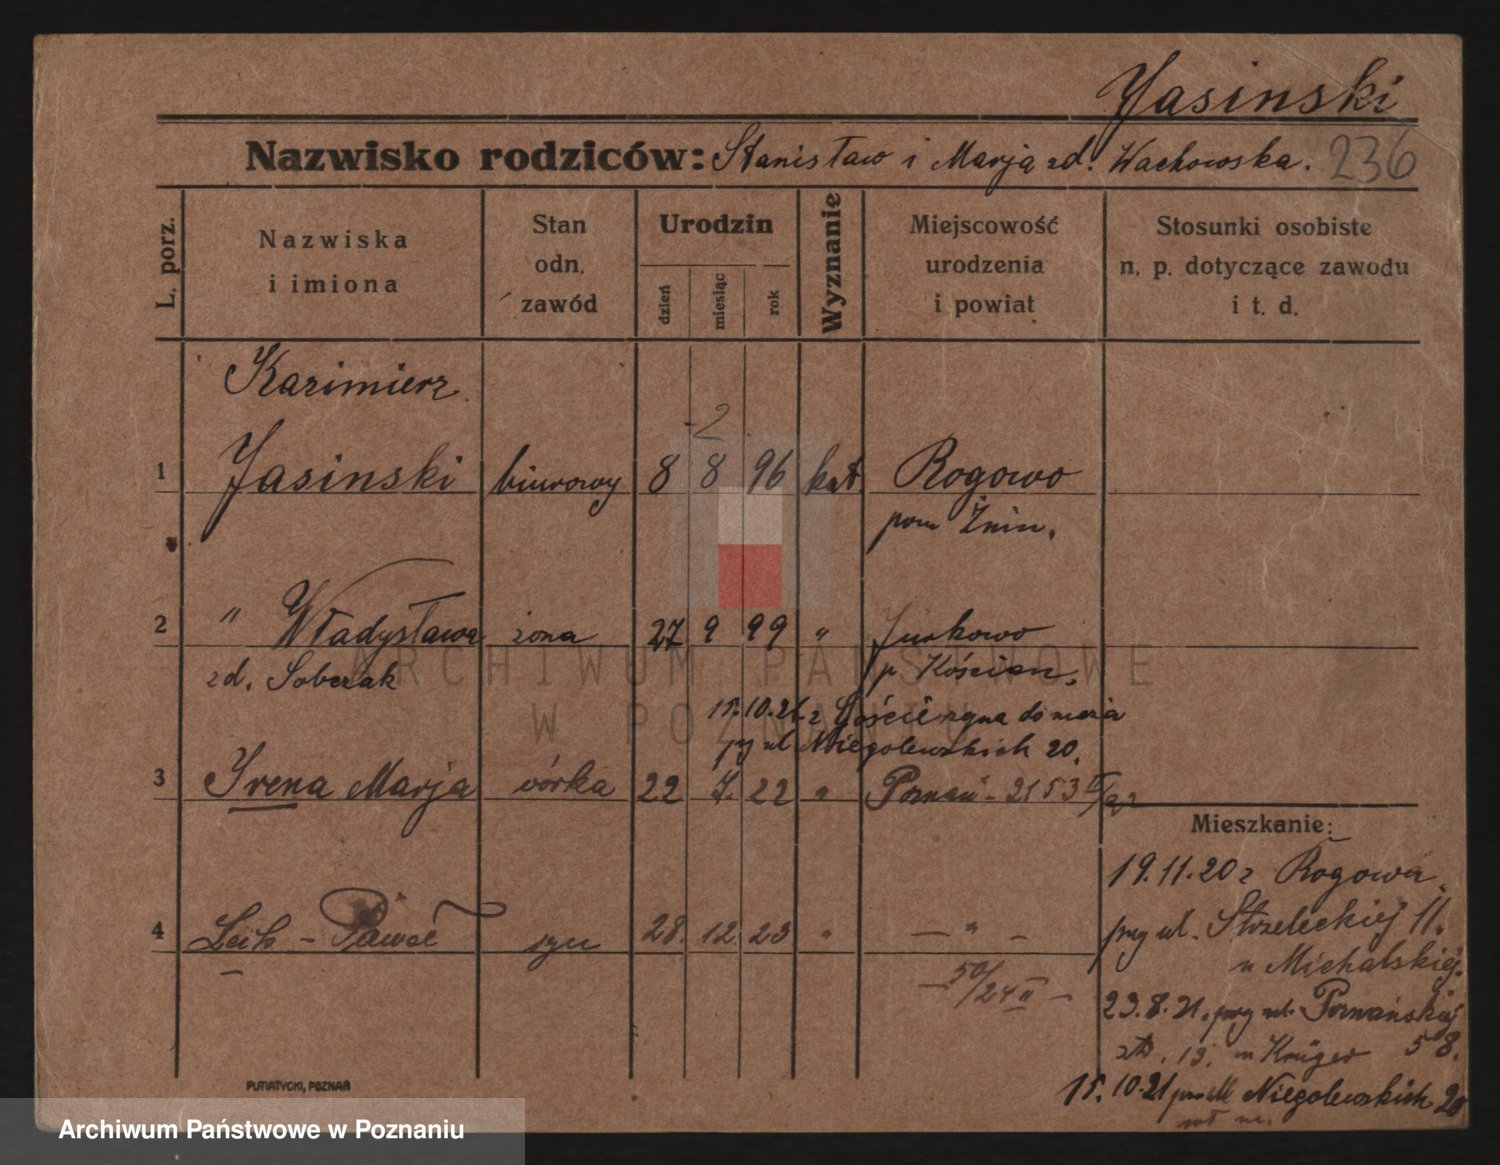 Jasinski
Nazwisko rodziców: Stanisław i Marja zd. Wachowska. 236
L. porz.
Nazwiska
i imiona
Stan
odn.
zawód
Urodzin
dzień
miesiąc
rok
Wyznanie
Miejscowość
urodzenia
i powiat
Stosunki osobiste
n. p. dotyczące zawodu
i t. d.
Kazimierz
2
1 Jasinski biurowy 8 8 96 kat. Rogowo
pow Żnin.
2 " Władysława żona 27 9 99 " Jurkowo
zd. Sobczak p Kościan.
ARCHIWUM PAŃSTWOWE
W POZNANIU
15.10.21 z Gościeszyna do męża
przy ul Niegolewskich 20.
3 Irena Marja córka 22 7. 22 " Poznań - 2153
Mieszkanie:
19.11.20 z Rogowa.
przy ul. Strzeleckiej 11.
u Michalskiej.
4 Lech - Paweł syn 28. 12 23 " — " —
— 50/24 II —
23.8.21. przy ul. Poznańskiej
13. u Krüger 58.
15.10.21 Niegolewskich 20
PUTIATYCKI, POZNAŃ
Archiwum Państwowe w Poznaniu